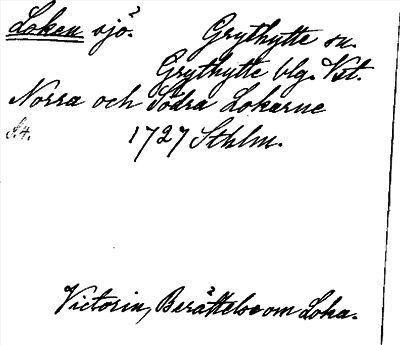 Loken sjö? Grythytte sn.
Grythytte blg. Vst.
Norra och Södra Lokarne
S. 4. 1727 Sthlm.
Victorin, Berättelse om Loka.